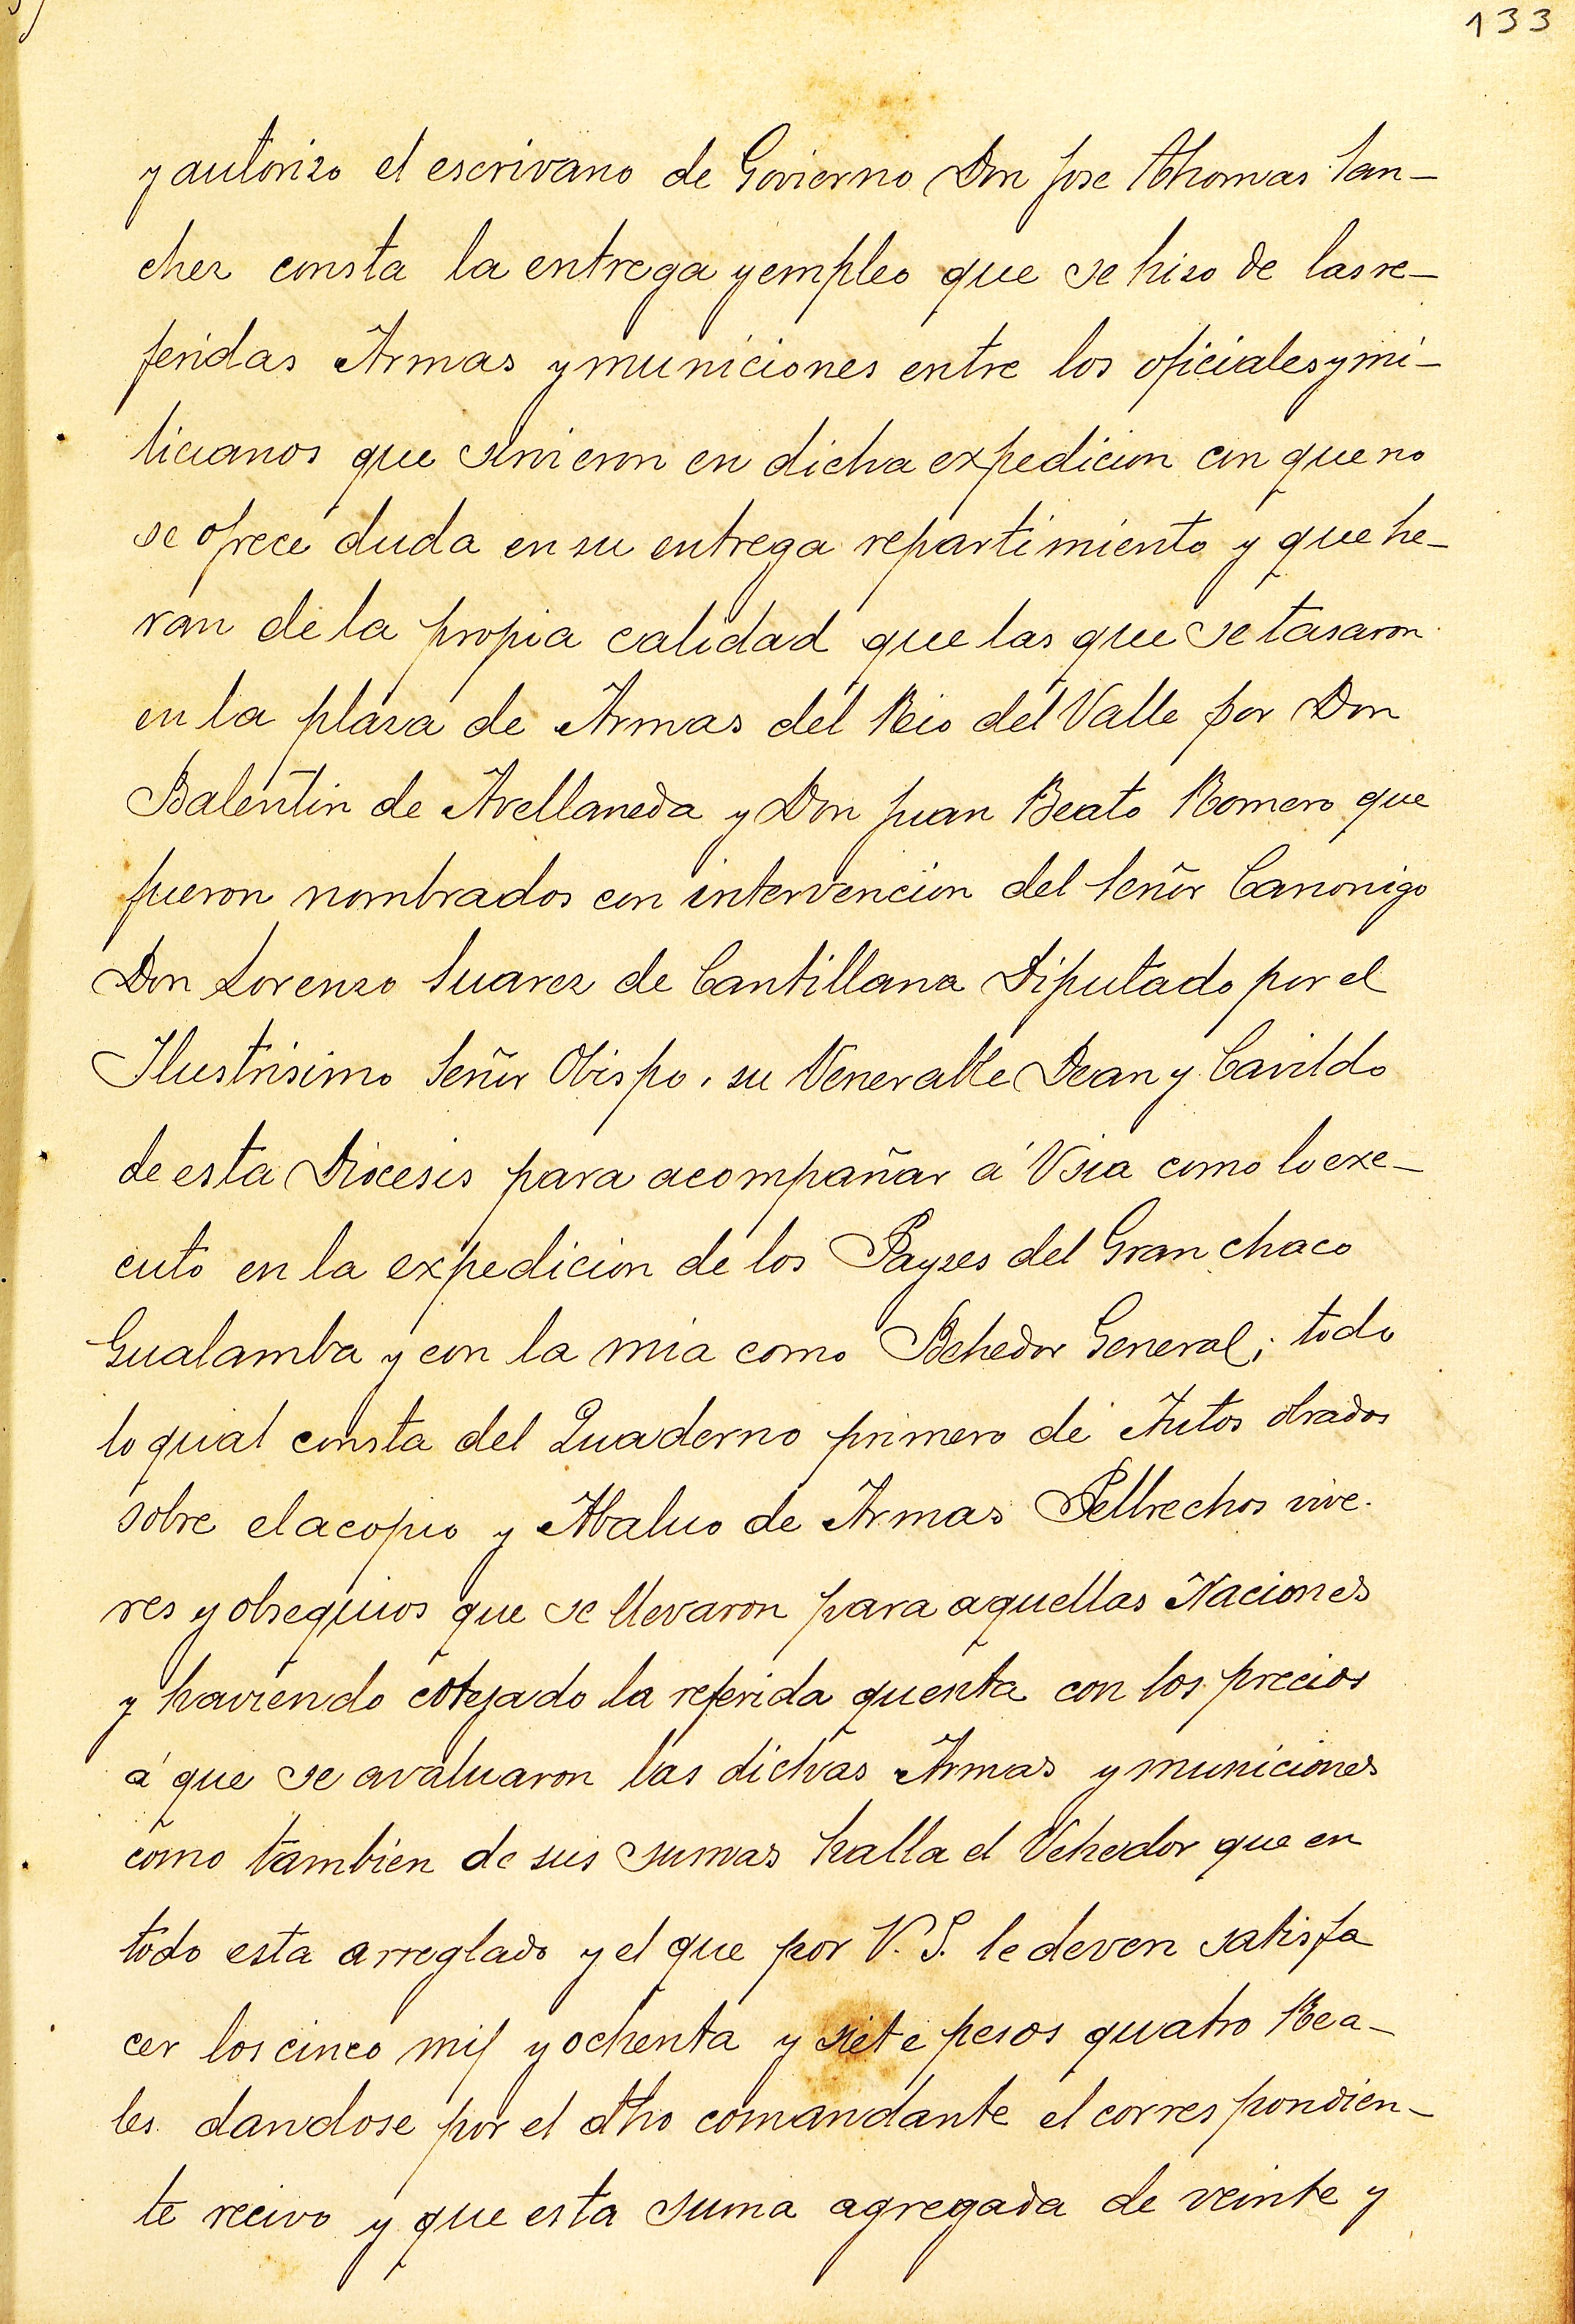 133
y autorizo el escrivano de Govierno Don Jose Thomas San-
chez consta la entrega y empleo que se hizo de las re-
feridas Armas y municiones entre los oficiales y mi-
licianos que sirvieron en dicha expedicion con que no
se ofrece duda en su entrega repartimiento y que he-
ran de la propia calidad que las que se tasaron
en la plaza de Armas del Rio del Valle por Don
Balentin de Avellaneda y Don Juan Beato Romero que
fueron nombrados con intervencion del Señor Canonigo
Don Lorenzo Suarez de Cantillana Diputado por el
Ilustrisimo Señor Obispo, su Venerable Dean y Cavildo
de esta Diocesis para acompañar á Vsia como lo exe-
cuto en la expedicion de los Payzes del Gran chaco
Gualamba y con la mia como Behedor General; todo
lo qual consta del Quaderno primero de Autos obrados
sobre el acopio y Abaluo de Armas Peltrechos vive-
res y obsequios que se llevaron para aquellas Naciones
y haviendo cotejado la referida quenta con los precios
á que se avaluaron las dichas Armas y municiones
como tambien de sus sumas halla el Vehedor que en
todo esta arreglado y el que por V. S. le deven satisfa
cer los cinco mil y ochenta y siete pesos quatro Rea-
les dandose por el dho comandante el correspondien-
te recivo y que esta suma agregada de veinte y